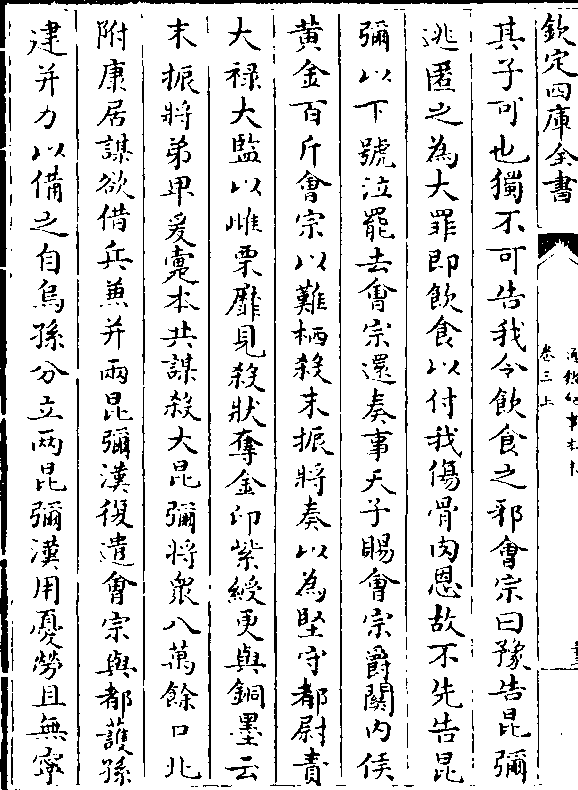 欽定四庫全書
卷三上
其子可也獨不可告我令飲食之邪會宗曰豫告昆彌
逃匿之為大罪即飲食以付我傷骨肉恩故不先告昆
彌以下號泣罷去會宗還奏事天子賜會宗爵關内侯
黄金百斤會宗以難栖殺末振將奏以為堅守都尉責
大禄大監以雌栗靡見殺狀奪金印紫綬更與銅墨云
末振將弟卑爰疐本共謀殺大昆彌將衆八萬餘口北
附康居謀欲借兵兼并兩昆彌漢復遣會宗與都護孫
建并力以備之自烏孫分立兩昆彌漢用憂勞且無寧